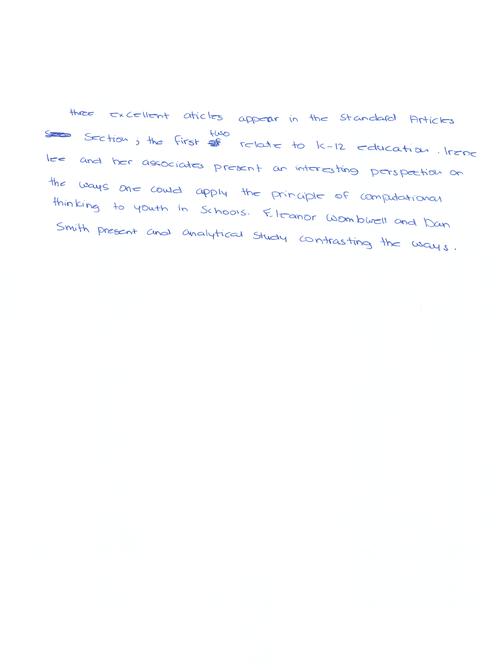 three excellent aticles appear in the Standard Articles
Section, the first two relate to K-12 education. Irene
lee and her associates present an interesting perspection on
the ways one could apply the principle of computational
thinking to youth in Schools. Eleanor Wombwell and Dan
Smith present and analytical study contrasting the ways.